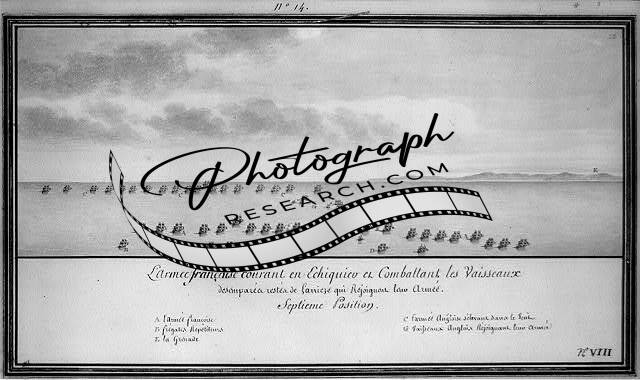 N° 14.
Photograph
RESEARCH.COM
L'armée française courant en Echiquier et Combattant les Vaisseaux
desemparés restés de l'arriere qui Rejoignent leur Armée.
Septieme Position.
A l'armée françoise
B frégates Repetiteurs
E la Grenade
C l'armée Angloise dans le Vent
G Vaisseaux Anglois Rejoignant leur Armée
Pl VIII